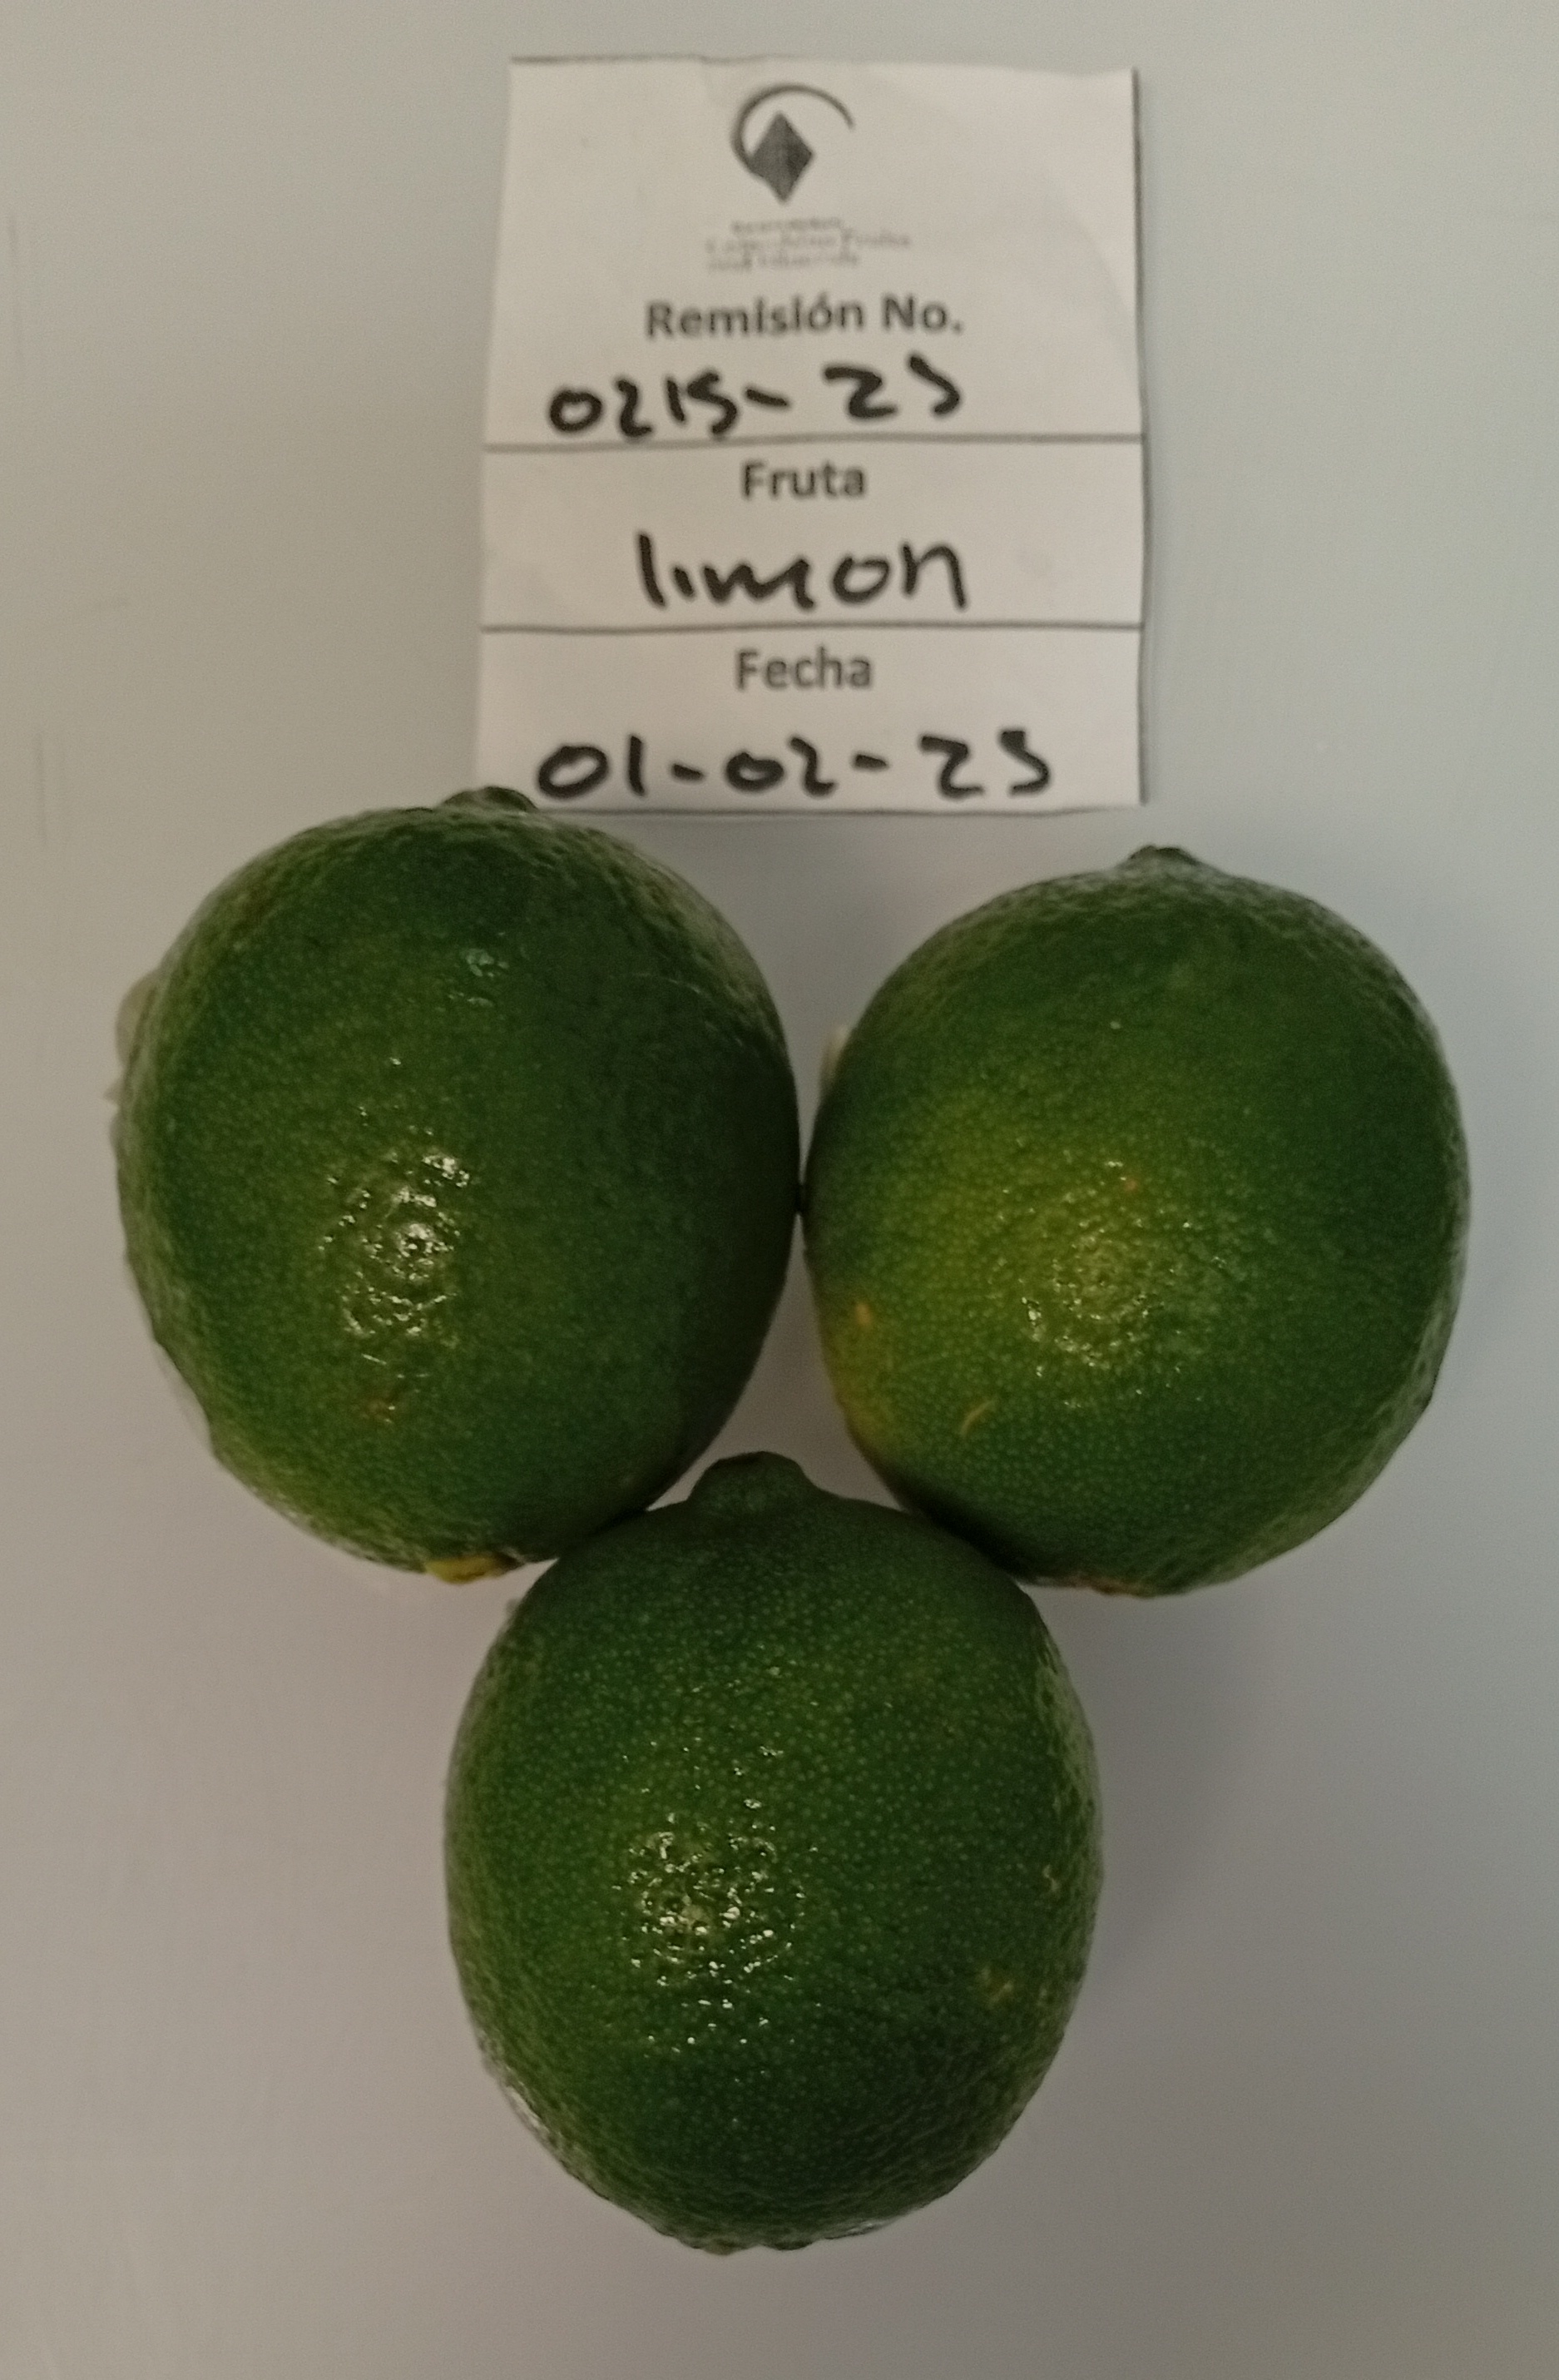 Remisión No.
0215-23
Fruta
limon
Fecha
01-02-23